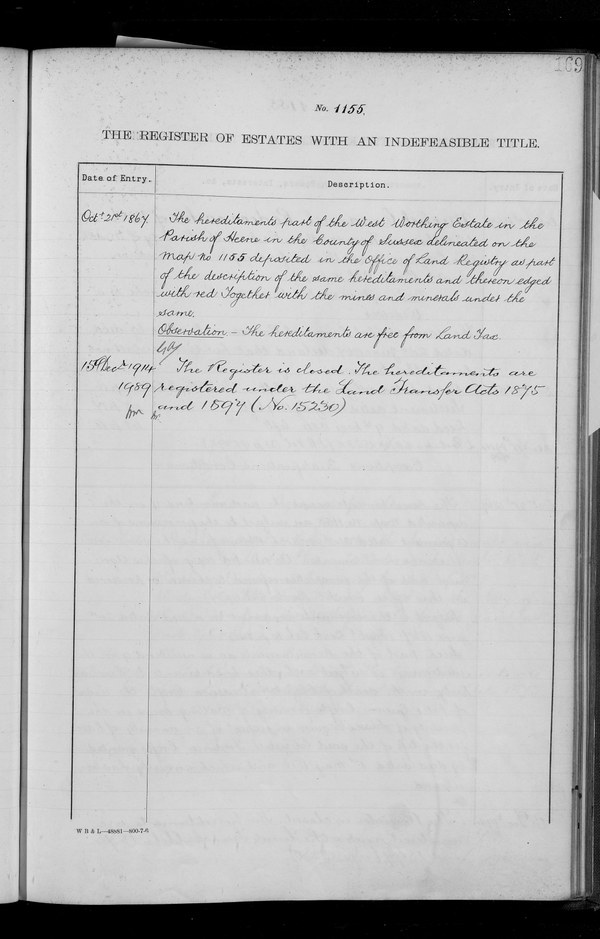 169
No. 1155.
THE REGISTER OF ESTATES WITH AN INDEFEASIBLE TITLE.
Date of Entry.
Description.
Octr 21st 1867
The hereditaments part of the West Worthing Estate in the
Parish of Heene in the County of Sussex delineated on the
Map No 1155 deposited in the Office of Land Registry as part
of the description of the same hereditaments and thereon edged
with red Together with the mines and minerals under the
same.
Observation. – The hereditaments are free from Land Tax.
15th Decr 1914
The Register is closed. The hereditaments are
1989
registered under the Land Transfer Acts 1875
and 1897 (No. 15230)
W B & L—48881—800-7-6